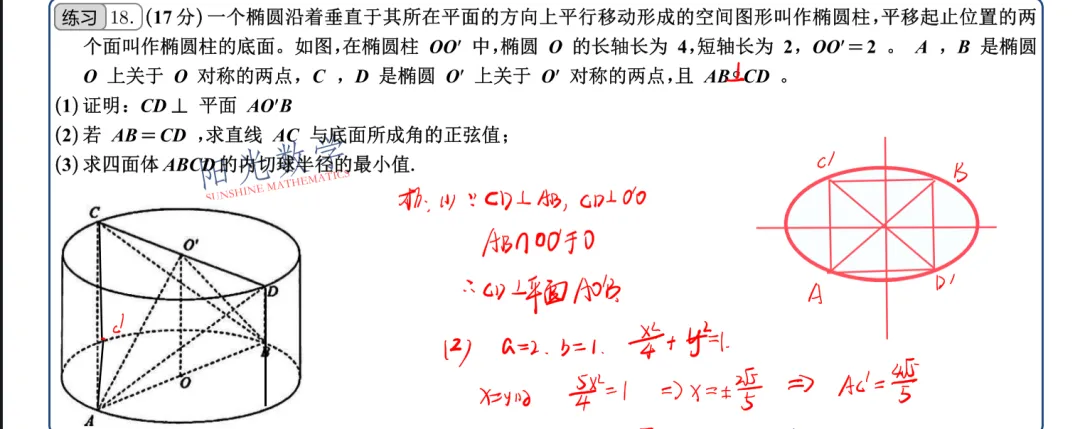 练习 18. (17分)一个椭圆沿着垂直于其所在平面的方向上平行移动形成的空间图形叫作椭圆柱,平移起止位置的两
个面叫作椭圆柱的底面。如图,在椭圆柱 OO′ 中,椭圆 O 的长轴长为 4,短轴长为 2, OO′=2 。 A , B 是椭圆
O 上关于 O 对称的两点, C , D 是椭圆 O′ 上关于 O′ 对称的两点,且 AB⊥CD 。
(1)证明: CD⊥ 平面 AO′B
(2)若 AB=CD ,求直线 AC 与底面所成角的正弦值;
(3)求四面体ABCD的内切球半径的最小值.
阳光数学
SUNSHINE MATHEMATICS
(1) ∵ CD⊥AB, CD⊥O′O
AB∩OO′于O
∴ CD⊥平面AO′B
(2) a=2. b=1. x²/4+y²=1.
x=y 5x²/4=1 => x=±2√5/5 => AC′=4√5/5
C
O′
D
C′
B
O
A
C′
B
A
D′